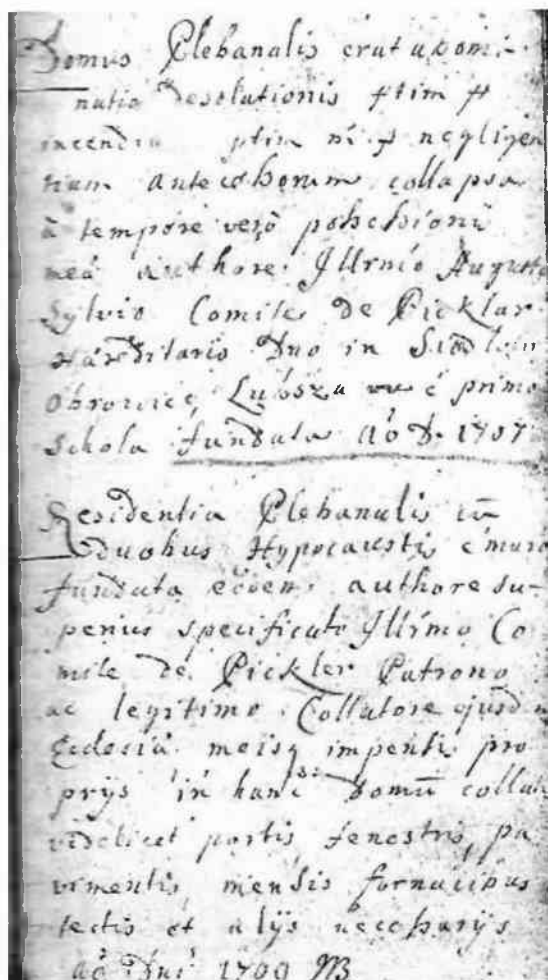 Domus Plebanalis erat abomi-
natio desolationis ptim p
incendia ptim ni p negligen
tiam antecessorum collapsa
à tempore verò possessionis
meâ authore Illrmo Augusto
Sylvio Comite de Pickler
Hæreditario Dno in
Obrowice, Lubsza é primo
schola fundata aô D. 1707
Residentia Plebanalis cū
duobus Hypocaustis é muro
fundata eodem authore su-
perius specificato Illrmo Co
mite de Pickler Patrono
ac legitimo Collatore ejusd
Ecclesiâ meisq impensis pro
prijs in hanc domū collatis
videlicet portis fenestris, pa
vimentis, mensis fornacibus
tectis et alijs necessarijs
aô Dni 1709 NB